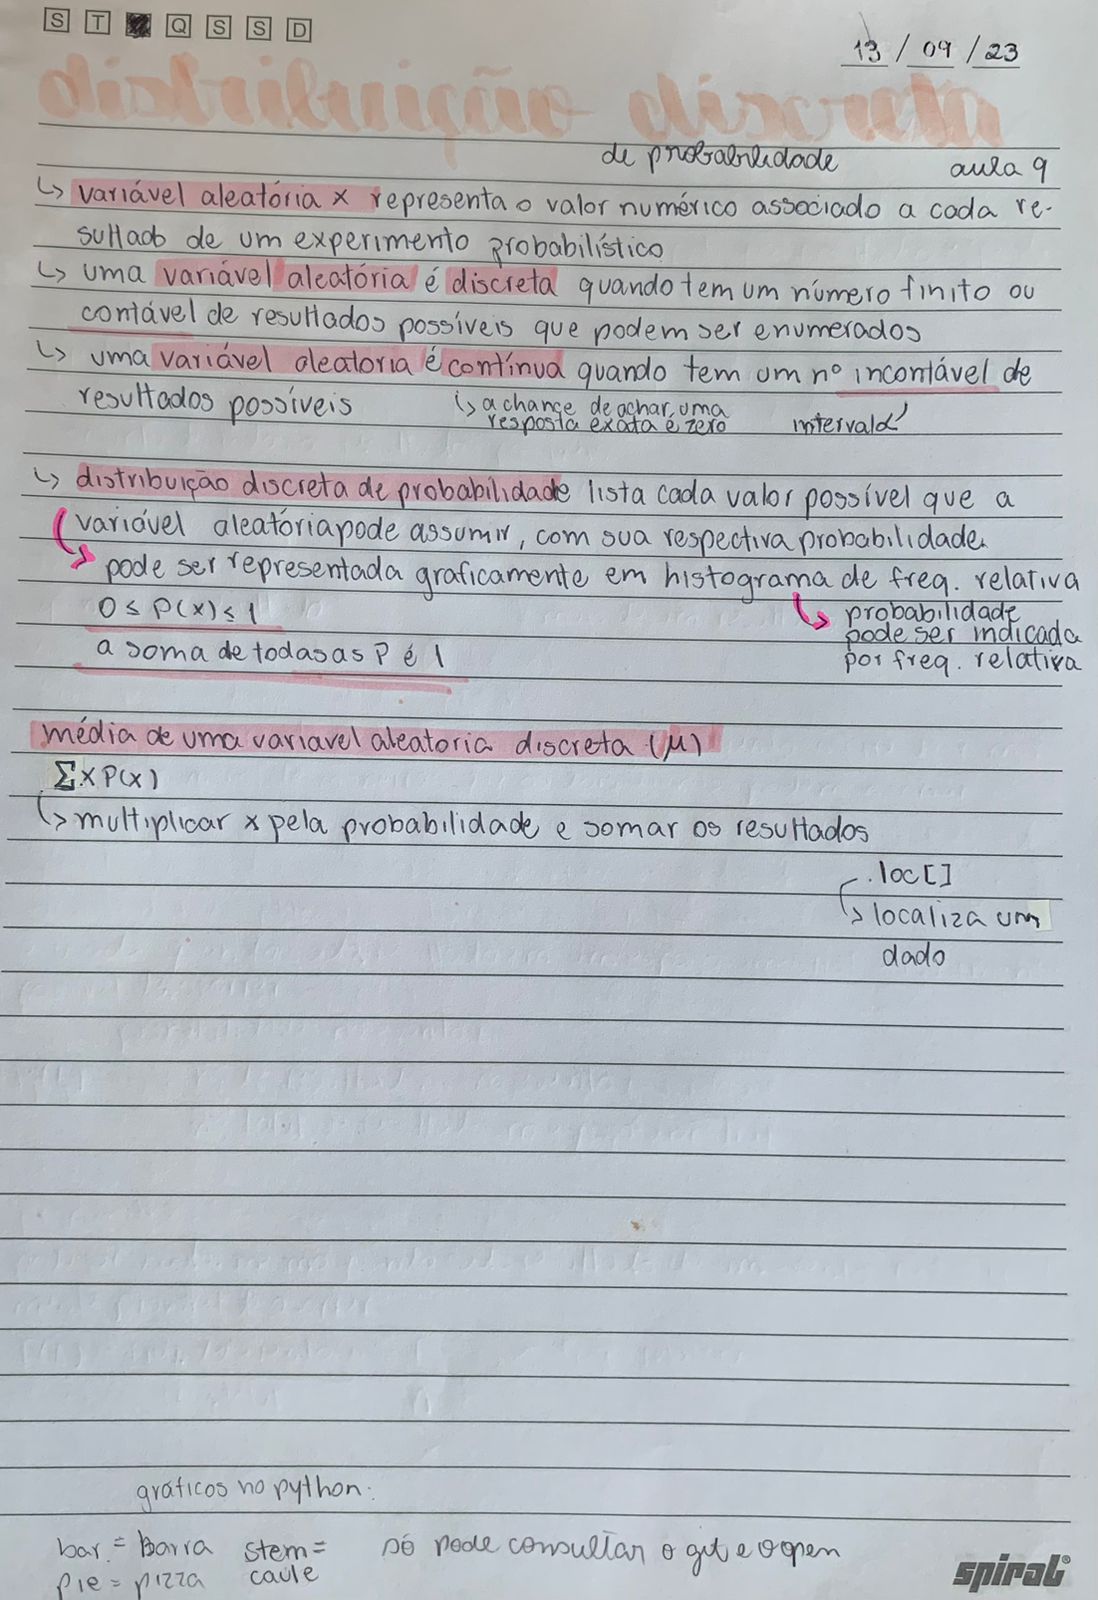 S T Q S S D
13 / 09 / 23
de probabilidade aula 9
↳ variável aleatória x representa o valor numérico associado a cada re-
sultado de um experimento probabilístico
↳ uma variável aleatória é discreta quando tem um número finito ou
contável de resultados possíveis que podem ser enumerados
↳ uma variável aleatoria é contínua quando tem um nº incontável de
resultados possíveis
↳ a chance de achar uma
resposta exata é zero
intervalo
↳ distribuição discreta de probabilidade lista cada valor possível que a
variável aleatória pode assumir, com sua respectiva probabilidade.
↳ pode ser representada graficamente em histograma de freq. relativa
↳ probabilidade
pode ser indicada
por freq. relativa
0 ≤ P(x) ≤ 1
a soma de todas as P é 1
média de uma variavel aleatoria discreta (μ)
Σ x P(x)
↳ multiplicar x pela probabilidade e somar os resultados
.loc[]
↳ localiza um
dado
gráficos no python:
bar = barra stem = só pode consultar o git e o open
pie = pizza caule
spiral®